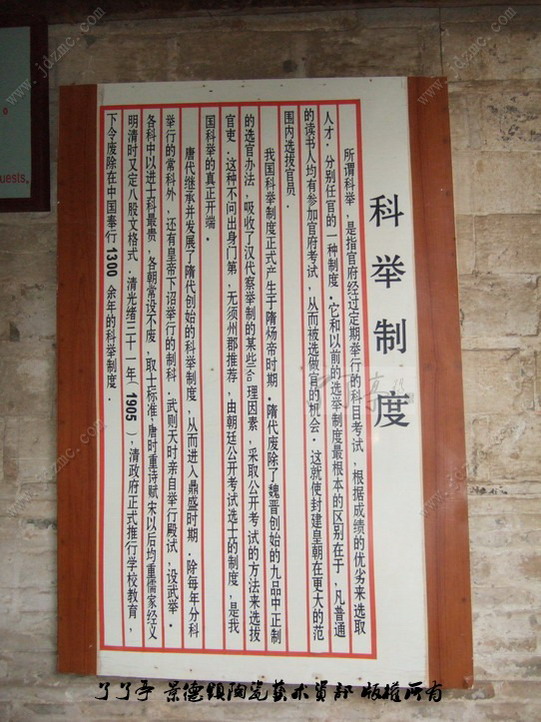 科举制度
所谓科举，是指官府经过定期举行的科目考试，根据成绩的优劣来选取
人才．分别任官的一种制度．它和以前的选举制度最根本的区别在于，凡普通
的读书人均有参加官府考试，从而被选做官的机会．这就使封建皇朝在更大的范
围内选拔官员．
我国科举制度正式产生于隋炀帝时期．隋代废除了魏晋创始的九品中正制
的选官办法，吸收了汉代察举制的某些合理因素，采取公开考试的方法来选拔
官吏．这种不问出身门第，无须州郡推荐，由朝廷公开考试选士的制度，是我
国科举的真正开端．
唐代继承并发展了隋代创始的科举制度，从而进入鼎盛时期．除每年分科
举行的常科外，还有皇帝下诏举行的制科．武则天时亲自举行殿试，设武举．
各科中以进士科最贵，各朝常设不废，取士标准，唐时重诗赋宋以后均重儒家经义
明清时又定八股文格式．清光绪三十一年（1905）清政府正式推行学校教育，
下令废除在中国奉行1300余年的科举制度．
uests.
www.jdzmc.com
了了亭 景德镇陶瓷艺术资部 版权所有